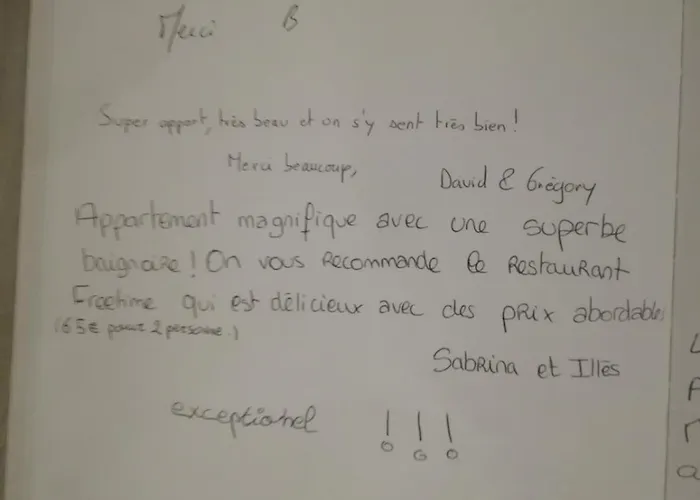 Merci B
Super appart, très beau et on s'y sent très bien!
Merci beaucoup,
David & Grégory
Appartement magnifique avec une superbe
baignoire! On vous Recommande le Restaurant
qui est délicieux avec des prix abordables
(65€ pour 2 personne.)
Sabrina et Illès
exceptionel !!!
L
A
r
a